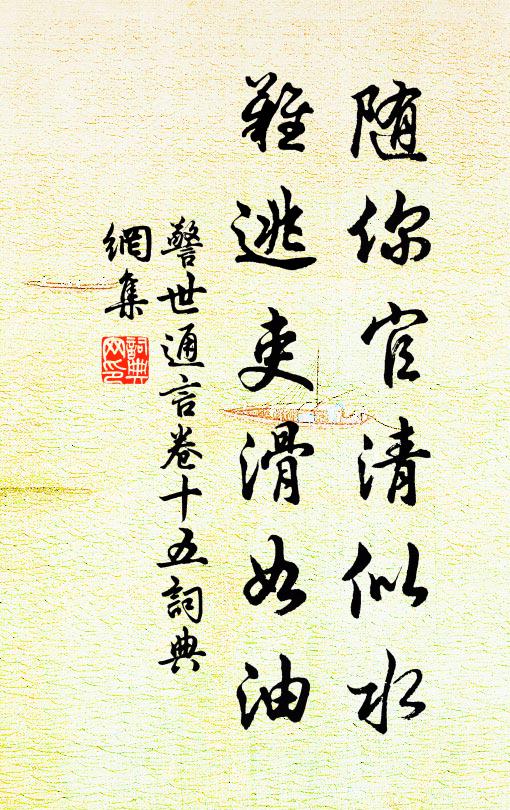 随你官清似水
難逃吏滑如油
警世通言卷十五詞典
網集
詞典
网印